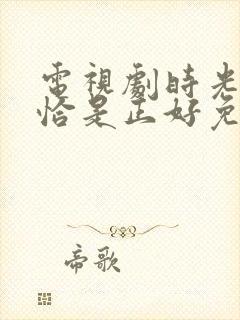 電視劇時光
恰是正好免
帝歌